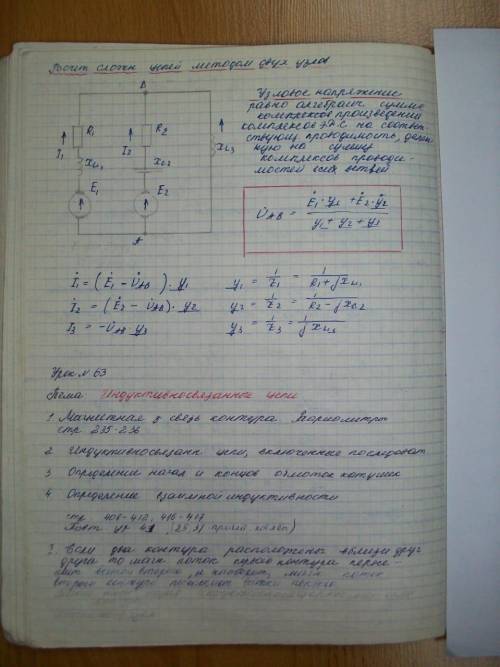 Расчет сложн цепей методом двух узлов
B
R1
R2
I1
I2
XL1
XC2
XL3
E1
E2
A
Узловое напряжение
равно алгебраич. сумме
комплексов произведений
комплексов ЭДС на соответ-
ствующую проводимость, делен
ную на сумму
комплексов проводи-
мостей всех ветвей
U̇AB = (Ė1·y1 + Ė2·y2) / (y1 + y2 + y3)
İ1 = (Ė1 − U̇AB)·y1
y1 = 1/Z1 = 1/(R1+jXL1)
İ2 = (Ė2 − U̇AB)·y2
y2 = 1/Z2 = 1/(R2−jXC2)
İ3 = −U̇AB·y3
y3 = 1/Z3 = 1/jXL3
Урок N 63
Тема: Индуктивносвязанные цепи
1. Магнитная связь контура Вариометры
стр 235-236
2 Индуктивносвязанн цепи, включенные последоват
3 Определение начал и концов обмоток катушек
4 Определение взаимной индуктивности
стр 406-412, 416-417
1. Если два контура расположены вблизи друг
друга то магн поток первого контура
поток
второго контура